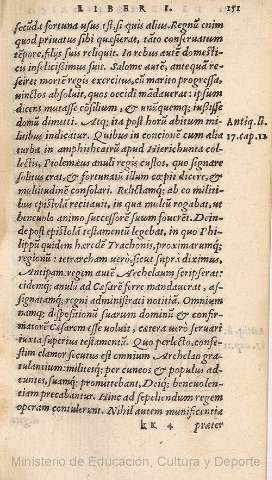 LIBER I. 151
secũda fortuna usus est, si quis alius. Regnũ enim
quod priuatus sibi quæsierat, tãto conseruatum
tẽpore, filijs suis reliquit. In rebus autẽ domesti-
cis infelicissimus fuit. Salome autẽ, antequã re-
sciret mortẽ regis exercitus, cũ marito progressa,
uinctos absoluit, quos occidi mãdauerat: ipsum
dicens mutasse cõsilium, & unũquemq; iußisse
domũ dimitti. Atq; ita post horũ abitum mi-
litibus indicatur. Quibus in concionẽ cum alia
turba in amphitheatrũ apud Hierichunta col-
lectis, Ptolemæus anuli regis custos, quo signare
solitus erat, & fortunatũ illum cœpit dicere, &
multitudinẽ consolari. Relictamq; ab eo militi-
bus epistolã recitauit, in qua multũ rogabat, ut
beneuolo animo successorẽ suum fouerẽt. Dein-
de post epistolã testamentũ legebat, in quo Phi-
lippũ quidem hæredẽ Trachonis, proximarumq;
regionũ: tetrarcham uerò, sicut supra diximus,
Antipam: regem autẽ Archelaum scripserat:
eidemq; anulũ ad Cæsarẽ ferre mandauerat, as-
signatamq; regni administrati notitiã. Omnium
namq; dispositionũ suarum dominũ & confir-
matorẽ Cæsarem esse uoluit, cætera uerò seruari
iuxta superius testamentũ. Quo perlecto, confe-
stim clamor secutus est omnium, Archelao gra-
tulantium: militesq; per cuneos & populus ad-
euntes, suamq; promittebant, Deiq; beneuolen-
tiam precabantur. Hinc ad sepeliendum regem
operam contulerunt. Nihil autem munificentia
kk 4 præter
Antiq. li.
17. cap. 12
Ministerio de Educación, Cultura y Deporte